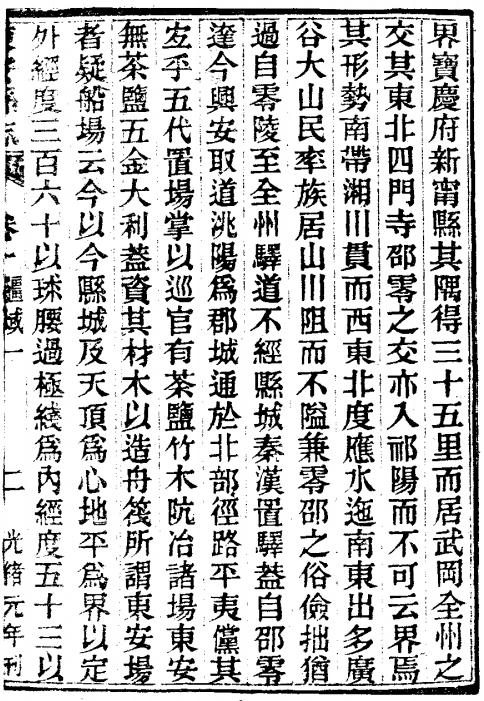 界寶慶府新甯縣其隅得三十五里而居武岡全州之
交其東北四門寺邵零之交亦入祁陽而不可云界焉
其形勢南帶湘川貫而西東北度應水迤南東出多廣
谷大山民率族居山川阻而不隘兼零邵之俗儉拙猶
過自零陵至全州驛道不經縣城秦漢置驛葢自邵零
達今興安取道洮陽爲郡城通於北部徑路平夷儻其
左乎五代置場掌以巡官有茶鹽竹木阬冶諸場東安
無茶鹽五金大利葢資其材木以造舟筏所謂東安場
者疑船場云今以今縣城及天頂爲心地平爲界以定
外經度三百六十以球腰過極綫爲內經度五十三以
東安縣志 卷一 疆域一 二 光緒元年刊